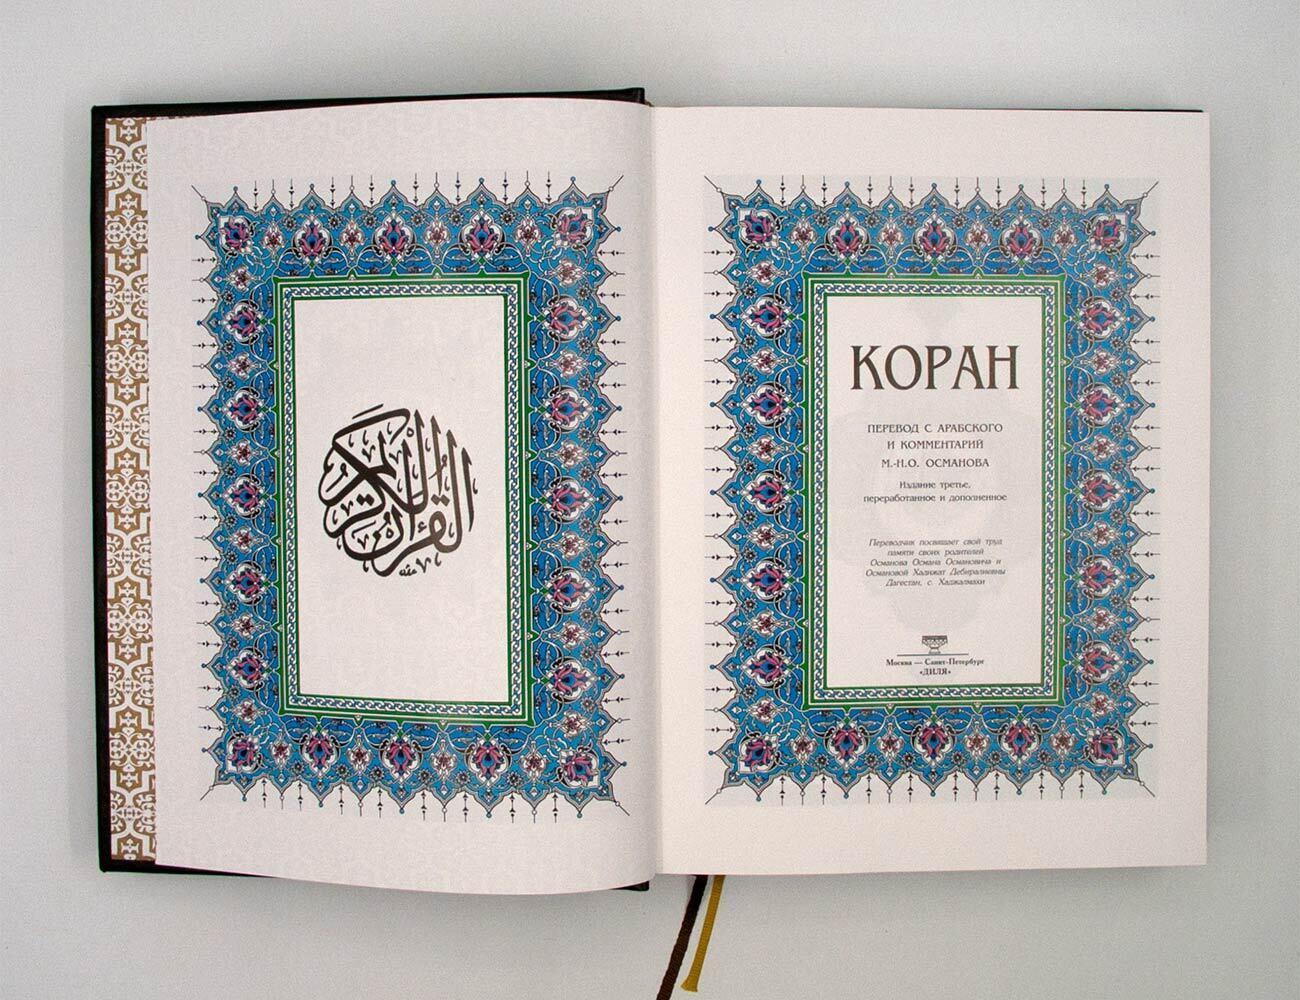 القرآن الكريم
КОРАН
ПЕРЕВОД С АРАБСКОГО
И КОММЕНТАРИЙ
М.-Н.О. ОСМАНОВА
Издание третье,
переработанное и дополненное
Переводчик посвящает свой труд
памяти своих родителей
Османова Османа Османовича и
Османовой Хадижат Дебиралиевны
Дагестан, с. Хаджалмахи
Москва — Санкт-Петербург
«ДИЛЯ»